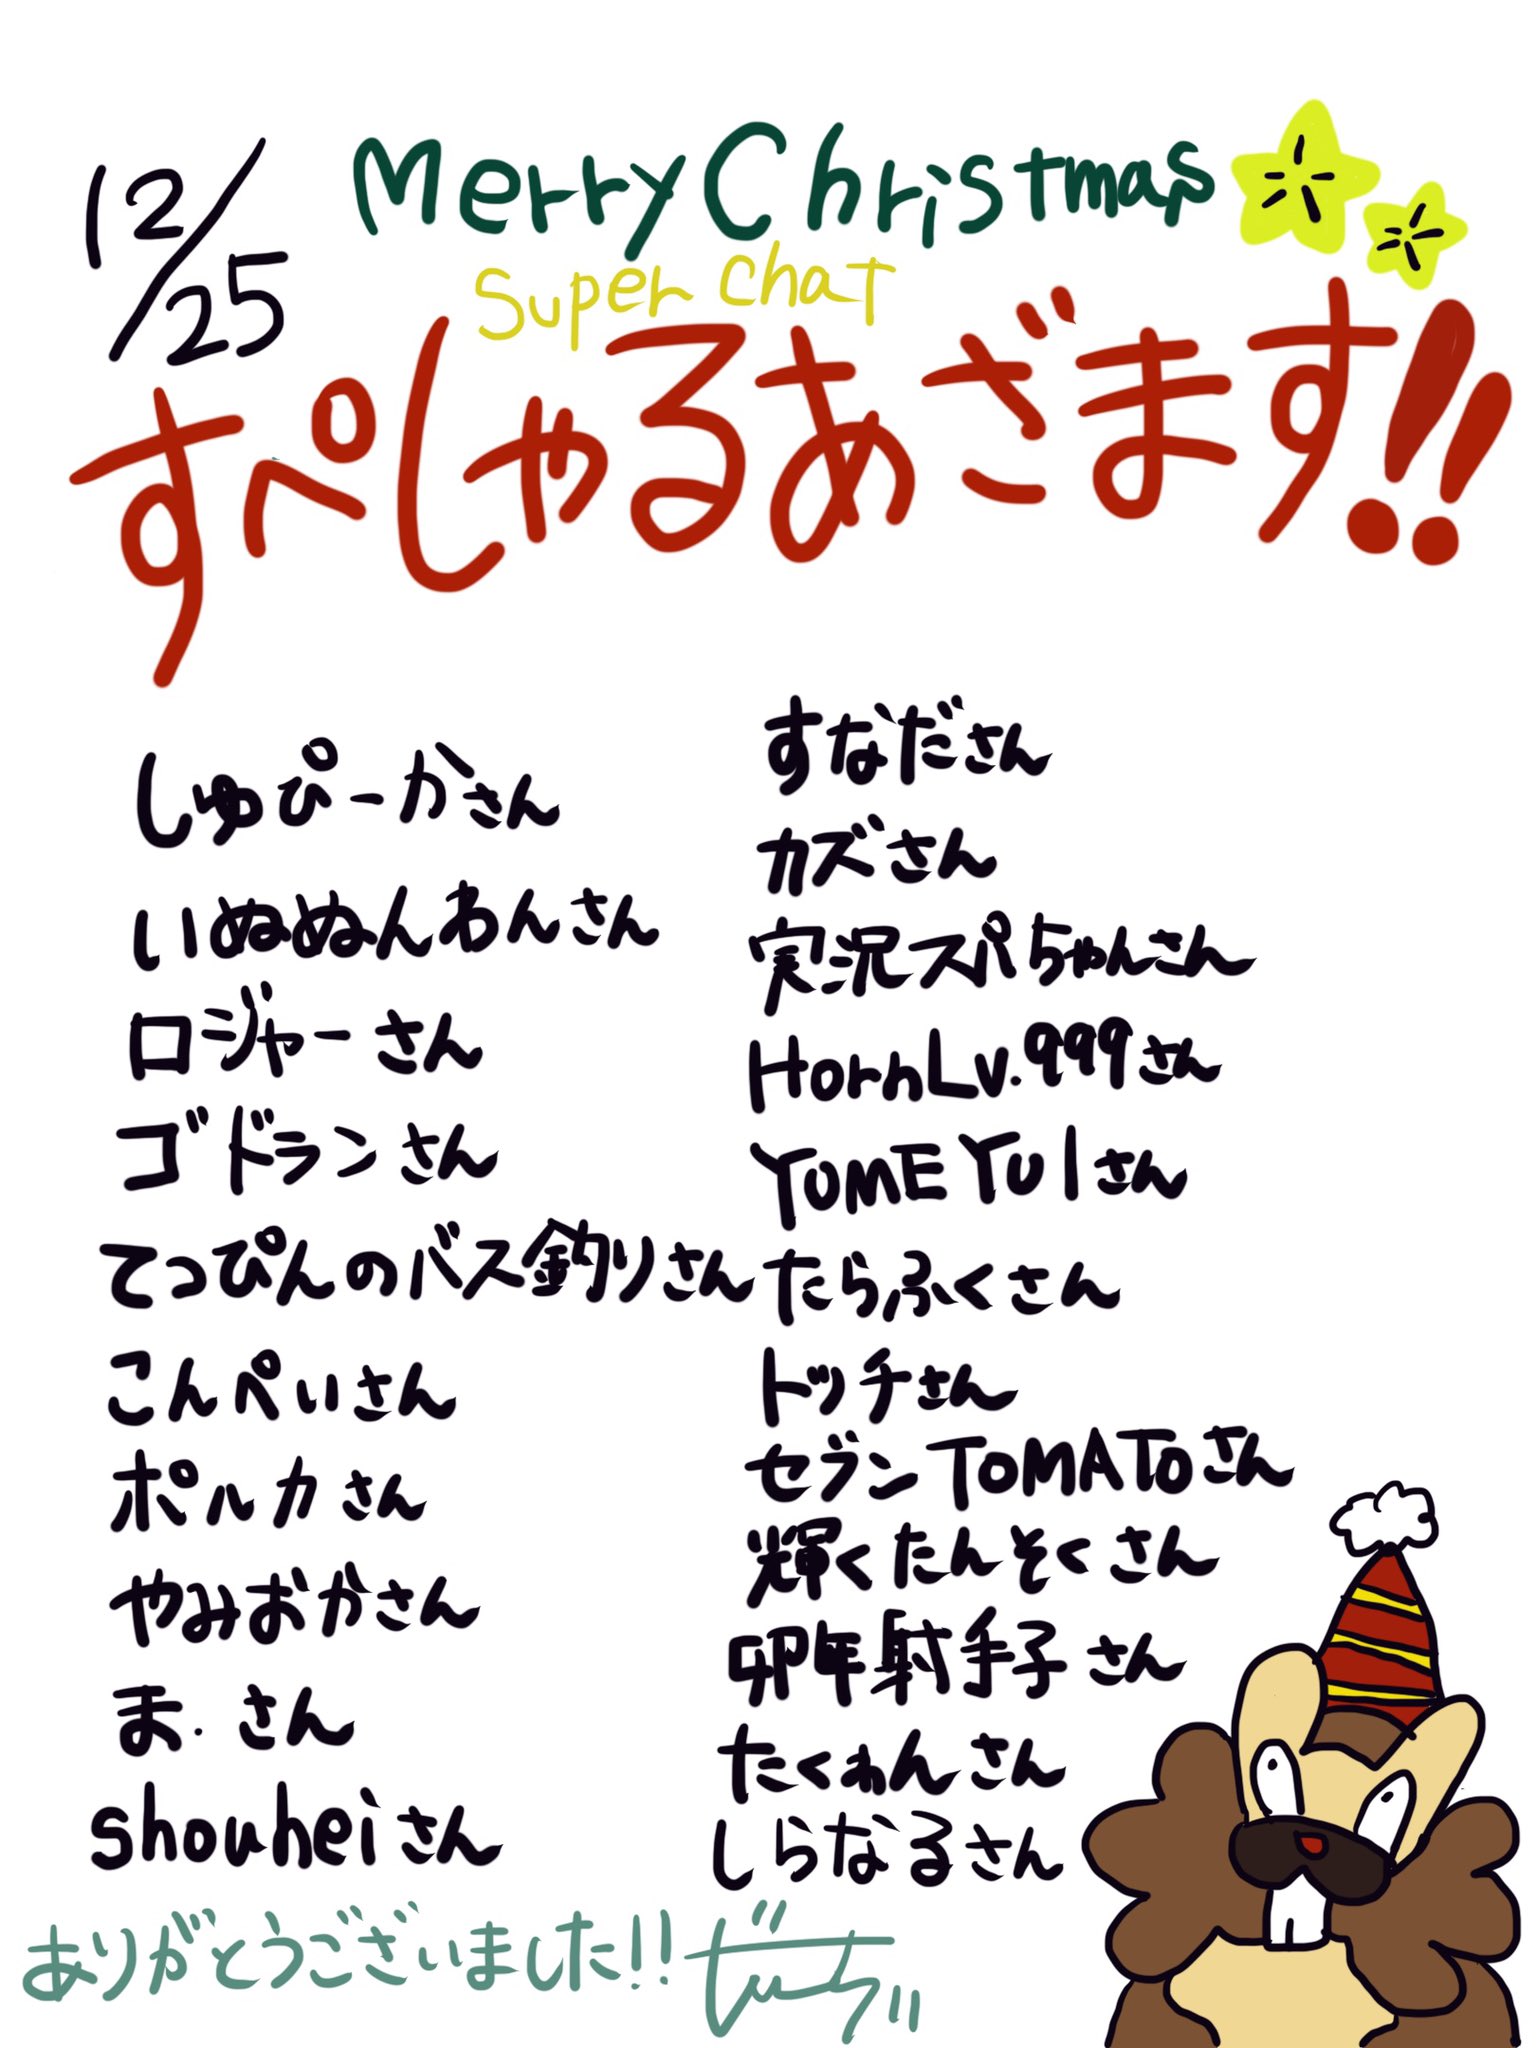 12/25
Merry Christmas
Super Chat
すぺしゃるあざます!!
しゅぴーかさん
いぬぬんわんさん
ロジャーさん
ゴドランさん
てっぴんのバス釣りさん
こんぺいさん
ポルカさん
やみおかさん
ま.さん
shouheiさん
すなださん
カズさん
実況スパちゃんさん
HornLv.999さん
YOMEYUIさん
たらふくさん
トッチさん
セブンTOMATOさん
輝くたんそくさん
卯年射手子さん
たくわんさん
しらなるさん
ありがとうございました!!